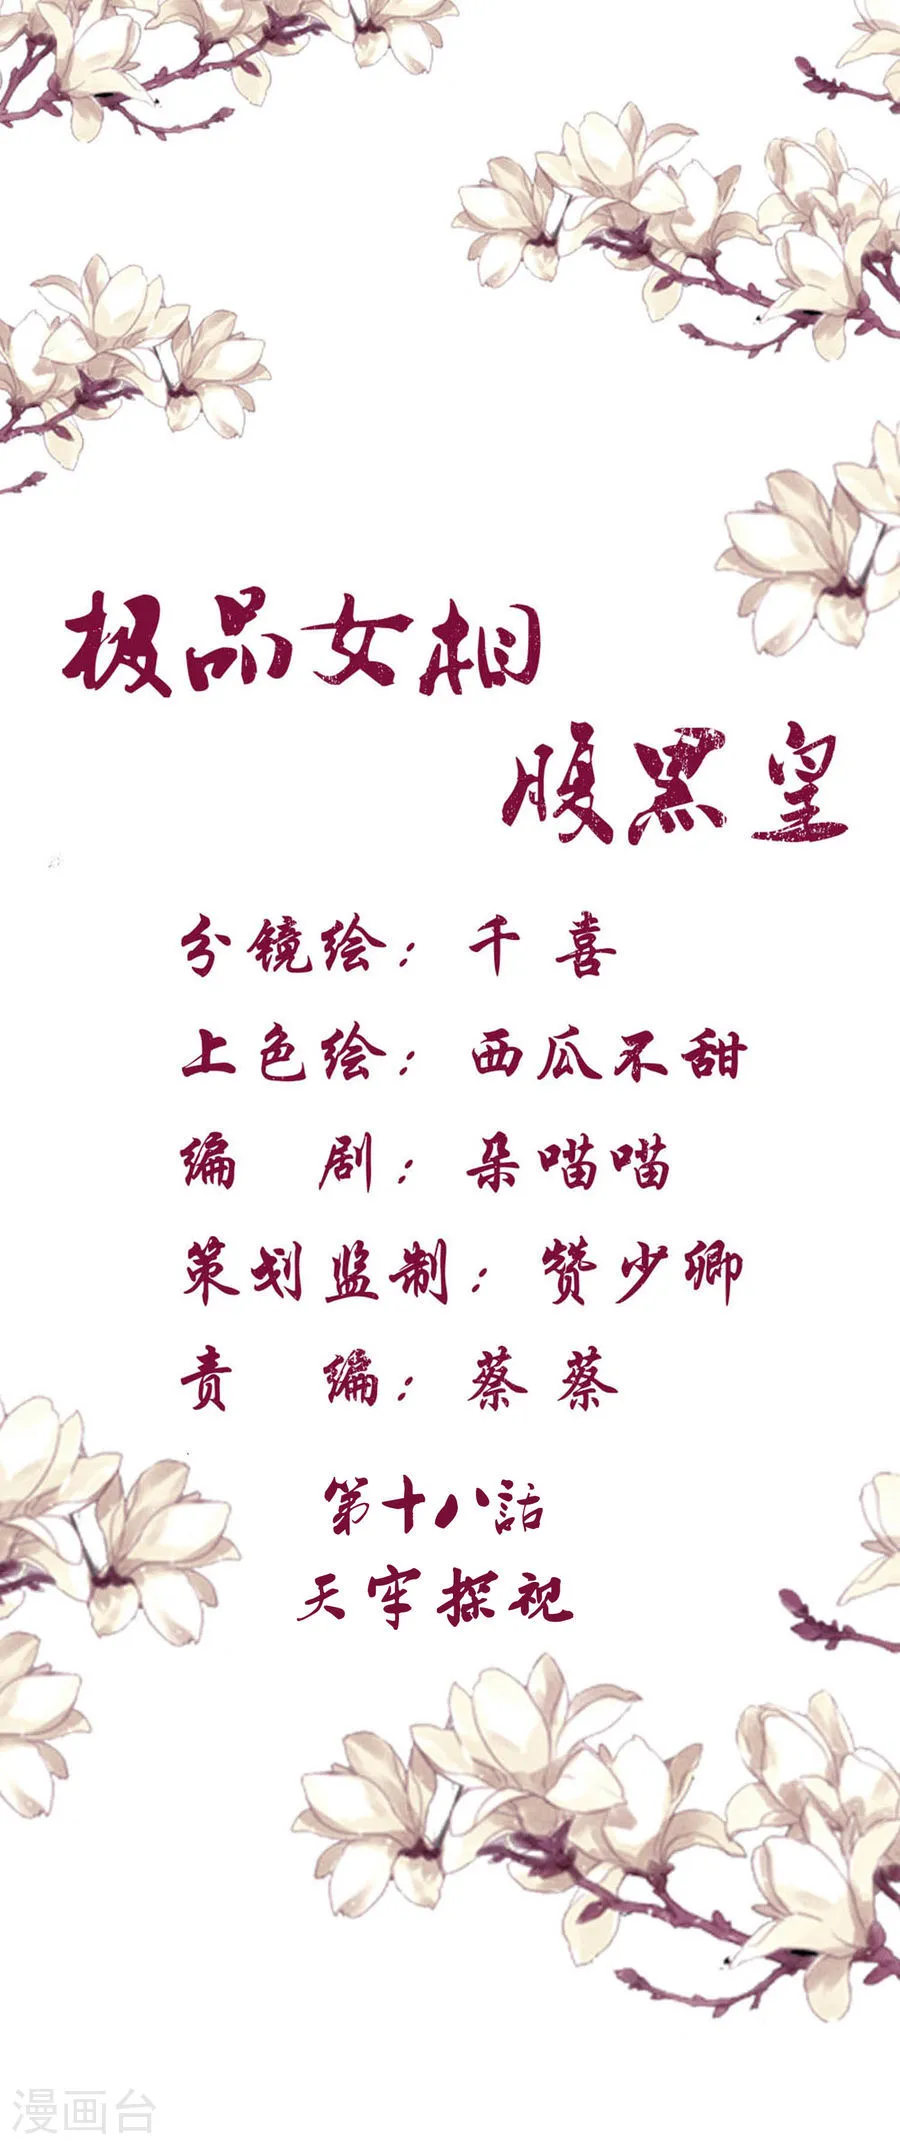 极品女相
腹黑皇
分镜绘：千喜
上色绘：西瓜不甜
编 剧：朵喵喵
策划监制：赞少卿
责 编：蔡蔡
第十八話
天牢探视
漫画台